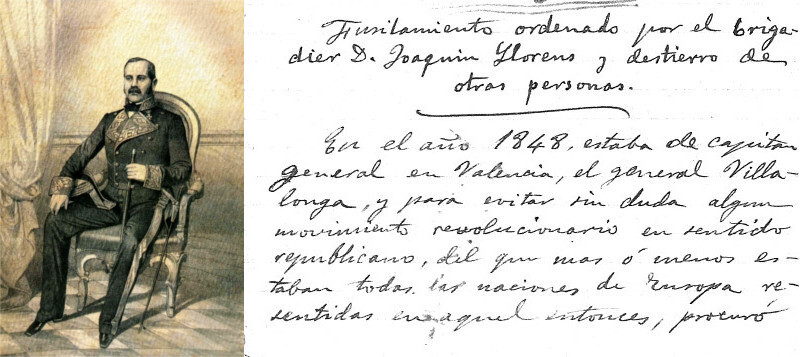 Fusilamiento ordenado por el briga-
dier D. Joaquin Llorens y destierro de
otras personas.
En el año 1848, estaba de capitan
general en Valencia, el general Villa-
longa, y para evitar sin duda algun
movimiento revolucionario en sentido
republicano, del que mas ó menos es-
taban todas las naciones de Europa re-
sentidas en aquel entonces, procuró